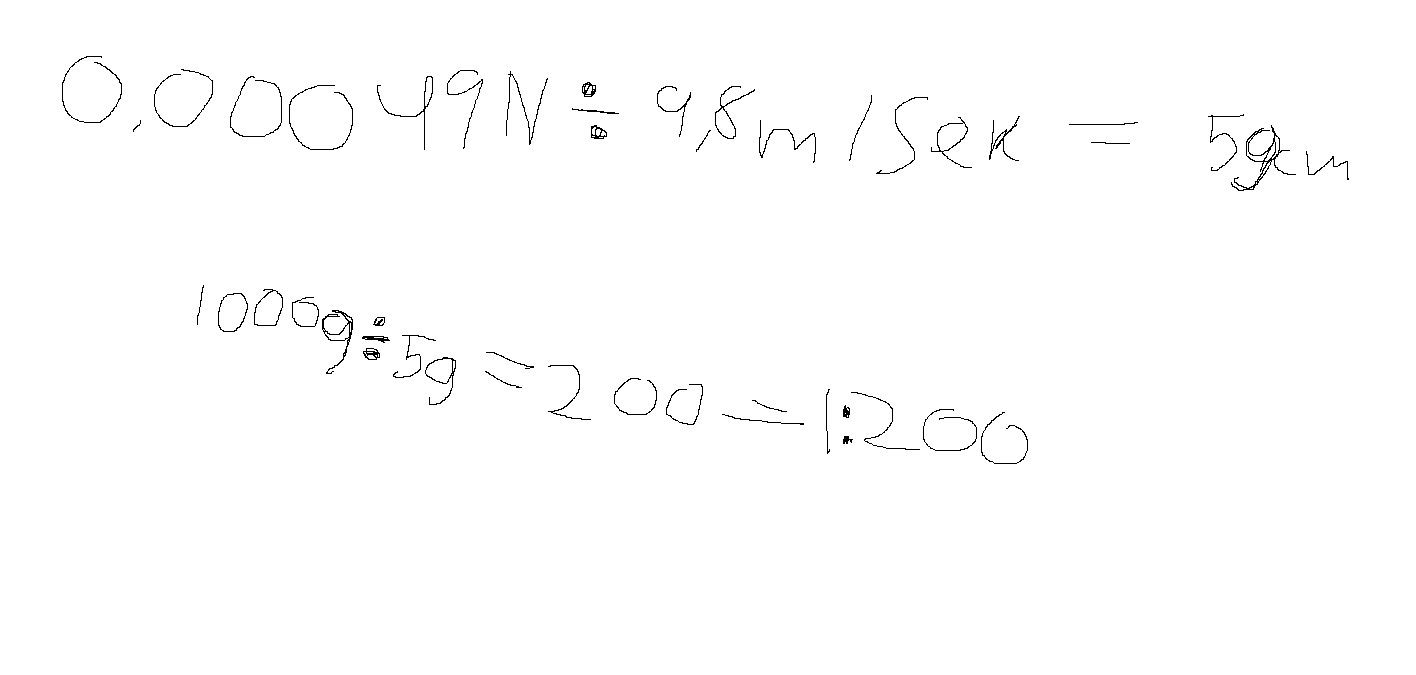 0,00049N ÷ 9,8m/Sek = 5gcm
1000g ÷ 5g = 200 = 1:200